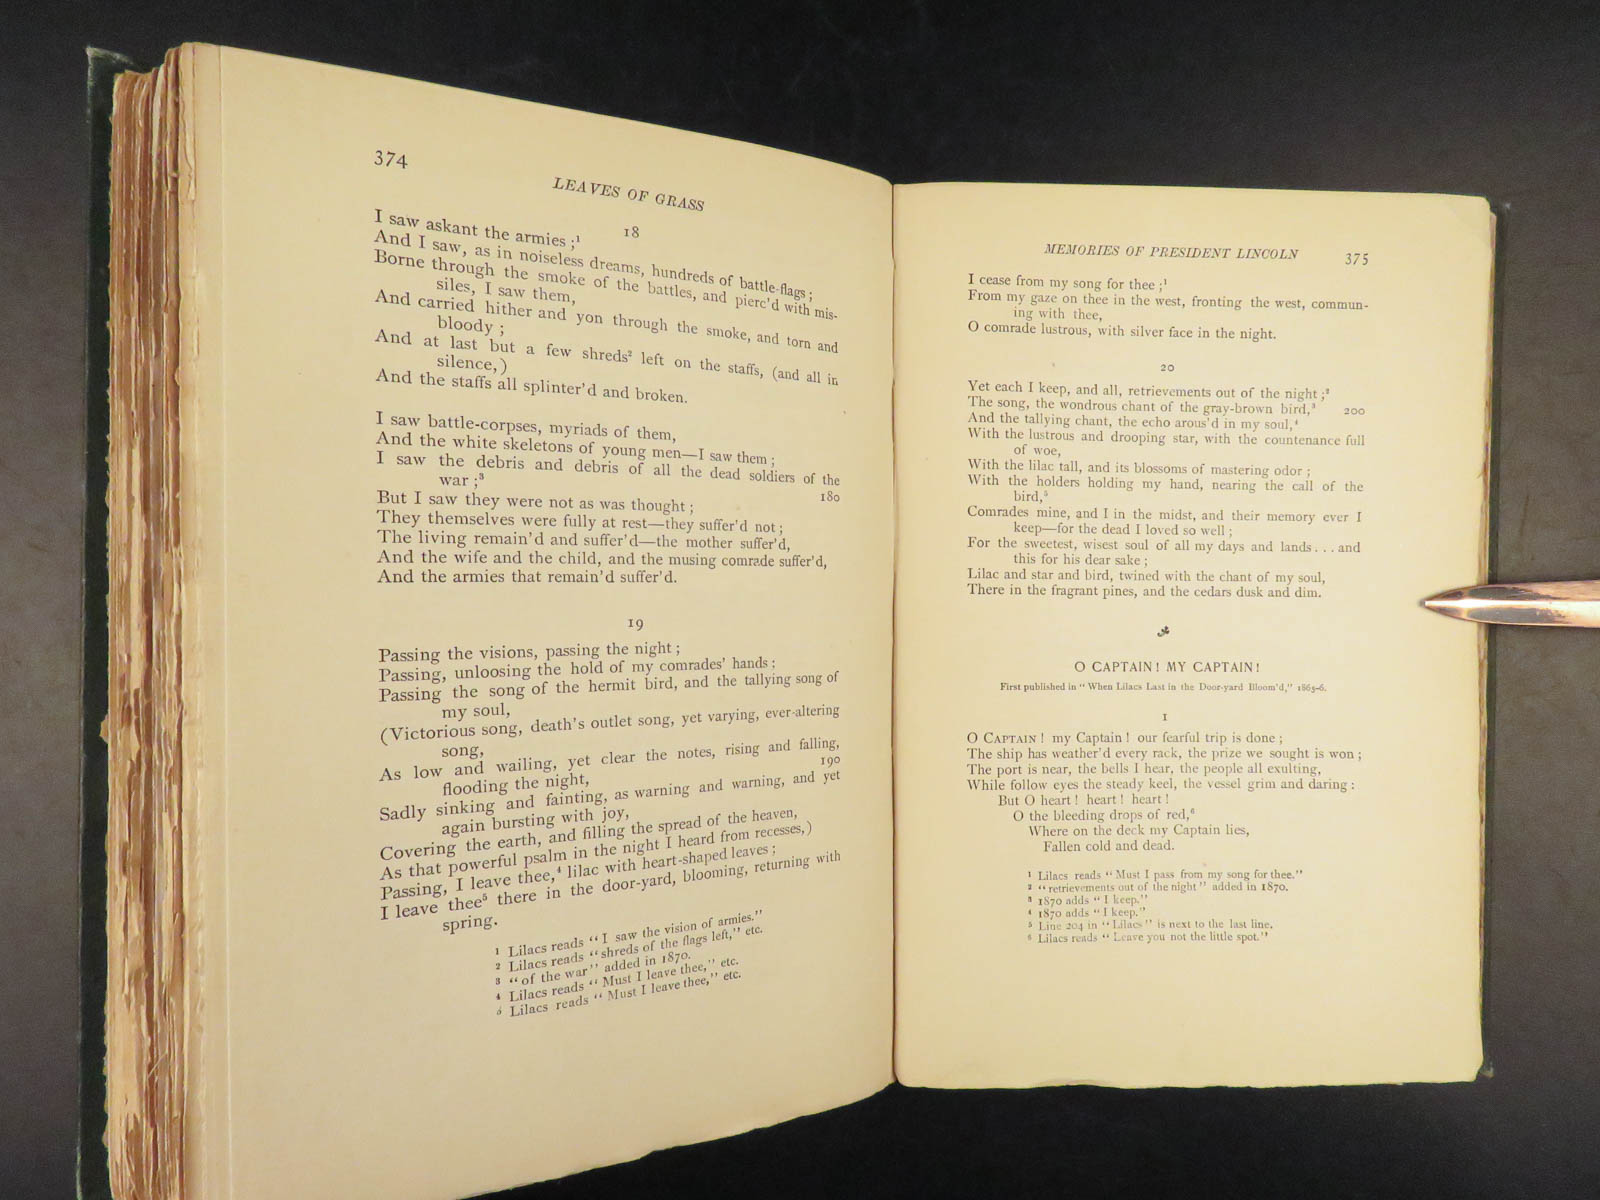 374
LEAVES OF GRASS
18
I saw askant the armies ;¹
And I saw, as in noiseless dreams, hundreds of battle-flags ;
Borne through the smoke of the battles, and pierc'd with mis-
siles, I saw them,
And carried hither and yon through the smoke, and torn and
bloody ;
And at last but a few shreds² left on the staffs, (and all in
silence,)
And the staffs all splinter'd and broken.
I saw battle-corpses, myriads of them,
And the white skeletons of young men—I saw them ;
I saw the debris and debris of all the dead soldiers of the
war ;³ 180
But I saw they were not as was thought ;
They themselves were fully at rest—they suffer'd not ;
The living remain'd and suffer'd—the mother suffer'd,
And the wife and the child, and the musing comrade suffer'd,
And the armies that remain'd suffer'd.
19
Passing the visions, passing the night ;
Passing, unloosing the hold of my comrades' hands ;
Passing the song of the hermit bird, and the tallying song of
my soul,
(Victorious song, death's outlet song, yet varying, ever-altering
song,
As low and wailing, yet clear the notes, rising and falling,
flooding the night, 190
Sadly sinking and fainting, as warning and warning, and yet
again bursting with joy,
Covering the earth, and filling the spread of the heaven,
As that powerful psalm in the night I heard from recesses,)
Passing, I leave thee,⁴ lilac with heart-shaped leaves ;
I leave thee⁵ there in the door-yard, blooming, returning with
spring.
¹ Lilacs reads “I saw the vision of armies.”
² Lilacs reads “shreds of the flags left,” etc.
³ “of the war” added in 1870.
⁴ Lilacs reads “Must I leave thee,” etc.
⁵ Lilacs reads “Must I leave thee,” etc.
MEMORIES OF PRESIDENT LINCOLN 375
I cease from my song for thee ;¹
From my gaze on thee in the west, fronting the west, commun-
ing with thee,
O comrade lustrous, with silver face in the night.
20
Yet each I keep, and all, retrievements out of the night ;²
The song, the wondrous chant of the gray-brown bird,³ 200
And the tallying chant, the echo arous'd in my soul,⁴
With the lustrous and drooping star, with the countenance full
of woe,
With the lilac tall, and its blossoms of mastering odor ;
With the holders holding my hand, nearing the call of the
bird,⁵
Comrades mine, and I in the midst, and their memory ever I
keep—for the dead I loved so well ;
For the sweetest, wisest soul of all my days and lands . . . and
this for his dear sake ;
Lilac and star and bird, twined with the chant of my soul,
There in the fragrant pines, and the cedars dusk and dim.
O CAPTAIN! MY CAPTAIN!
First published in “When Lilacs Last in the Door-yard Bloom'd,” 1865-6.
1
O CAPTAIN! my Captain! our fearful trip is done ;
The ship has weather'd every rack, the prize we sought is won ;
The port is near, the bells I hear, the people all exulting,
While follow eyes the steady keel, the vessel grim and daring :
But O heart! heart! heart!
O the bleeding drops of red,⁶
Where on the deck my Captain lies,
Fallen cold and dead.
¹ Lilacs reads “Must I pass from my song for thee.”
² “retrievements out of the night” added in 1870.
³ 1870 adds “I keep.”
⁴ 1870 adds “I keep.”
⁵ Line 204 in “Lilacs” is next to the last line.
⁶ Lilacs reads “Leave you not the little spot.”